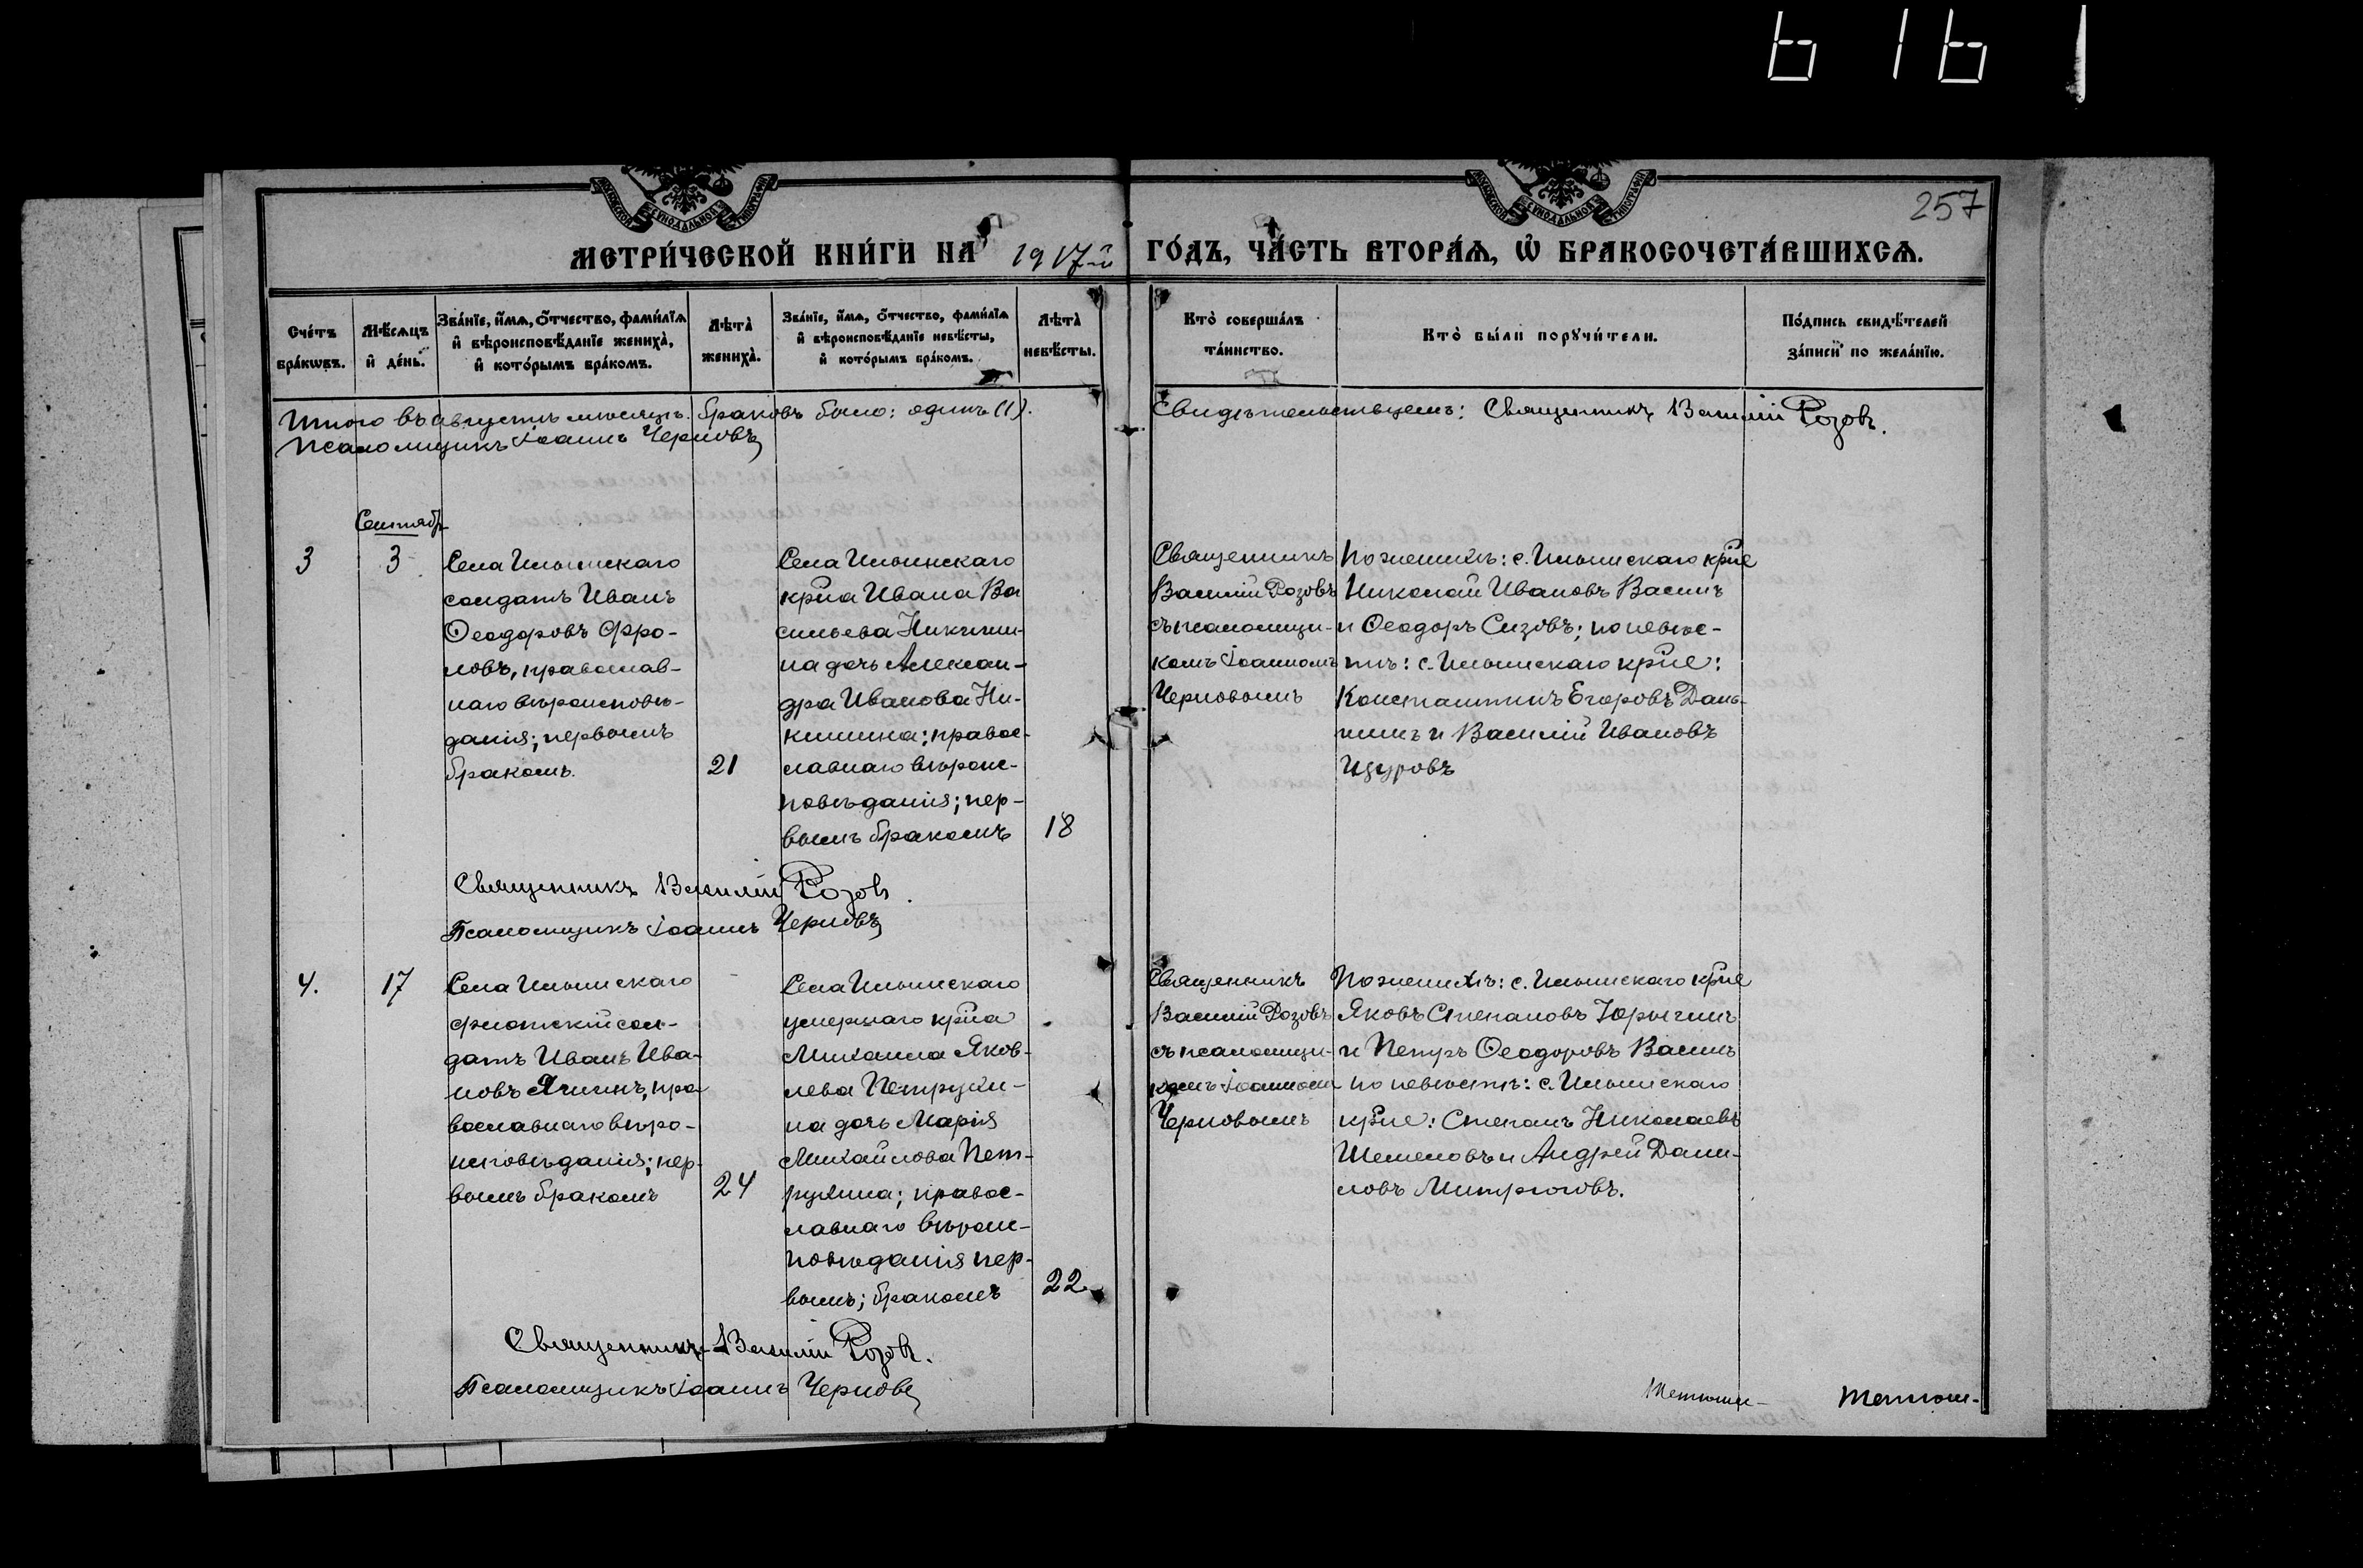 616
257
МЕТРИ́ЧЕСКОЙ КНИ́ГИ НА 1917-й ГО́ДЪ, ЧА́СТЬ ВТОРА́Ѧ, Ѽ БРАКОСОЧЕТА́ВШИХСѦ.
Сче́тъ бра́кѡвъ.
Мѣ́сѧцъ и҆ де́нь.
Зва́нїе, и҆́мѧ, ѻ҆́тчество, фами́лїѧ и҆ вѣроисповѣ́данїе жениха̀, и҆ кото́рымъ бра́комъ.
Лѣта̀ жениха̀.
Зва́нїе, и҆́мѧ, ѻ҆́тчество, фами́лїѧ и҆ вѣроисповѣ́данїе невѣ́сты, и҆ кото́рымъ бра́комъ.
Лѣта̀ невѣ́сты.
Кто̀ соверша́лъ та́инство.
Кто̀ бы́ли порꙋчи́тели.
По́дпись свидѣ́телей за́писи по жела́нїю.
Итого въ августѣ мѣсяцѣ браковъ было: одинъ (1).
Псаломщикъ Іоаннъ Черновъ
Свидѣтельствуемъ: Священникъ Василій Розовъ.
Сентябр
3
3
Села Ильинскаго
солдатъ Иванъ
Ѳеодоровъ Фро-
ловъ, православ-
наго вѣроисповѣ-
данія; первымъ
бракомъ.
21
Села Ильинскаго
кр-на Ивана Ва
сильева Никити-
на дочь Алексан-
дра Иванова Ни-
китина; правос-
лавнаго вѣроис-
повѣданія; пер-
вымъ бракомъ
18
Священникъ
Василій Розовъ
съ псаломщи-
комъ Іоанномъ
Черновымъ
По женихѣ: с. Ильинскаго кр-не
Николай Ивановъ Васинъ
и Ѳеодоръ Сизовъ; по невѣс-
тѣ: с. Ильинскаго кр-не:
Константинъ Егоровъ Дань-
шинъ и Василій Ивановъ
Щуровъ
Священникъ Василій Розовъ.
Псаломщикъ Іоаннъ Черновъ
4.
17
Села Ильинскаго
флотскій сол-
датъ Иванъ Ива-
новъ Ячинъ, пра
вославнаго вѣро-
исповѣданія; пер-
вымъ бракомъ
24
Села Ильинскаго
умершаго кр-на
Михаила Яков-
лева Петрухи-
на дочь Марія
Михайлова Пет-
рухина; правос-
лавнаго вѣроис-
повѣданія пер-
вымъ; бракомъ
22
Священникъ
Василій Розовъ
съ псаломщи-
комъ Іоанном
Черновымъ
По женихѣ: с. Ильинскаго кр-не
Яковъ Степановъ Юрыгинъ
и Петръ Ѳеодоровъ Васинъ
по невѣстѣ: с. Ильинскаго
кр-не: Степанъ Николаевъ
Шемелов и Андрей Дани-
ловъ Митроговъ.
Священникъ Василій Розовъ.
Псаломщикъ Іоаннъ Черновъ
Тетюш-